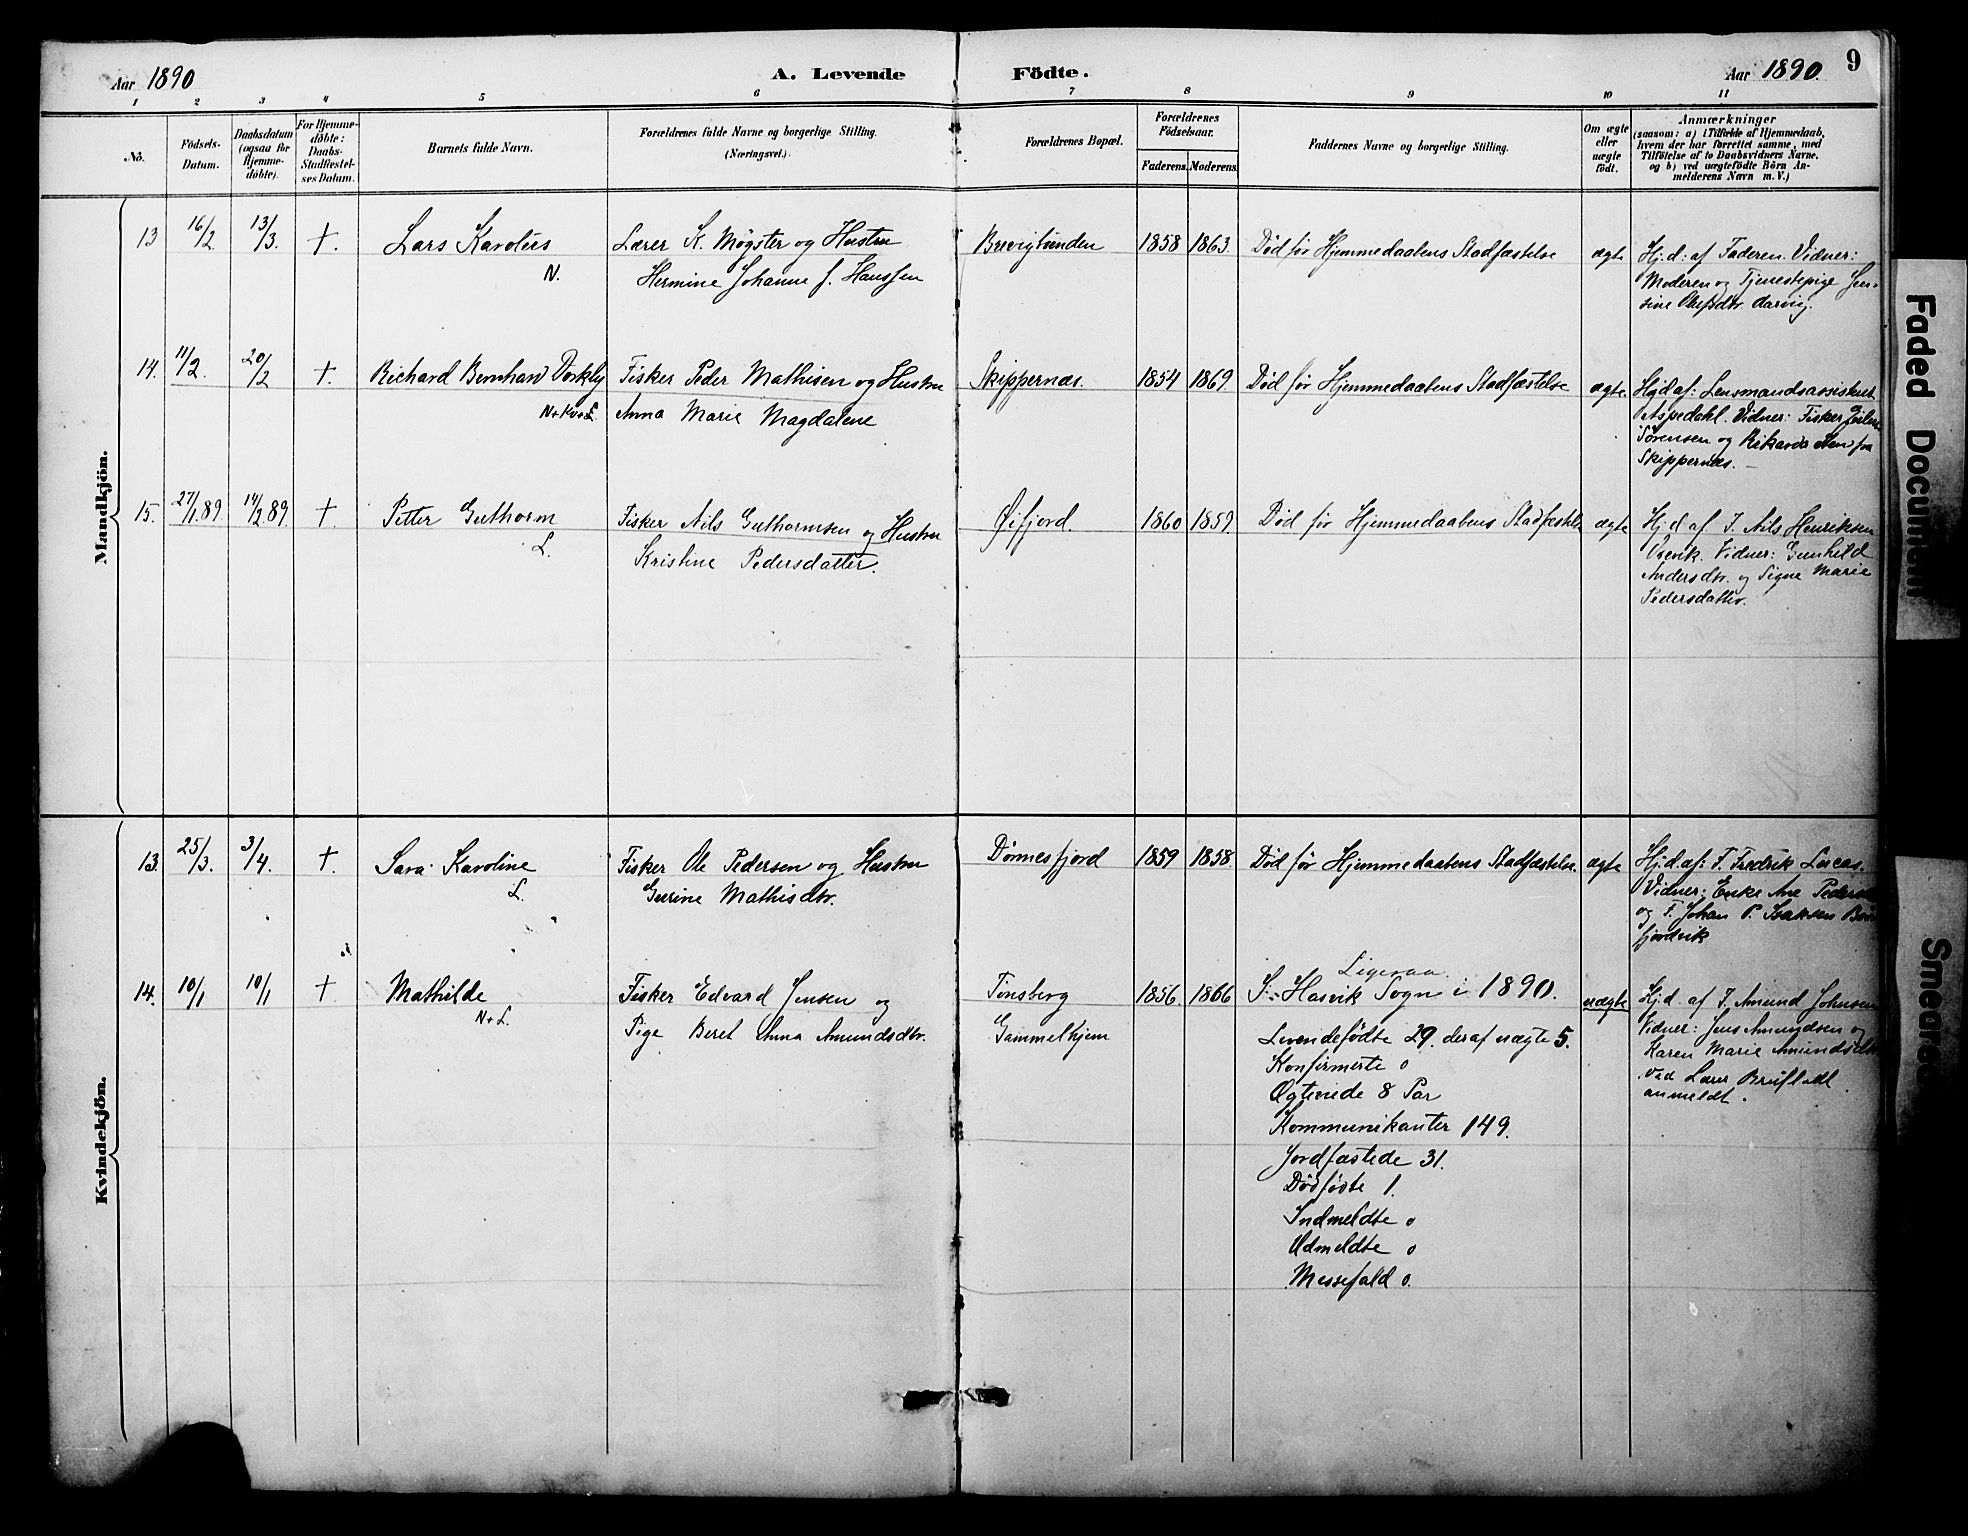 Aar 1890 A. Levende Födte. Aar 1890. 9
1 2 3 4 5 6 7 8 9 10 11
No.
Födsels-
Datum.
Daabsdatum
(ogsaa för
Hjemme-
döbte).
For Hjemme-
döbte:
Daabs-
Stadfæstel-
ses Datum.
Barnets fulde Navn.
Forældrenes fulde Navne og borgerlige Stilling.
(Næringsvei.)
Forældrenes Bopæl.
Forældrenes
Födselsaar.
Faderens. Moderens.
Faddernes Navne og borgerlige Stilling.
Om ægte
eller
uægte
födt.
Anmærkninger
(saasom: a) i Tilfælde af Hjemmedaab,
hvem der har forrettet samme, med
Tilföielse af to Daabsvidners Navne,
og b) ved uægtefödte Börn An-
melderens Navn m. V.)
Mandkjön.
13 16/2 13/3. +. Lars Karolius
N.
Lærer K. Møgster og Hustru
Hermine Johanne f. Hanssen
Breviglunden 1858 1863. Død før Hjemmedaabens Stadfæstelse ægte
Hj.d: af Faderen. Vidner:
Moderen og Tjenestepige Jen-
sine Olufsdtr.
14. 11/2. 20/2 +. Richard Bernhard
N+Kv+L.
Fisker Peder Mathisen og Hustru
Anna Marie Magdalene
Skippernæs. 1854 1869. Død før Hjemmedaabens Stadfæstelse ægte.
Hj.d af: Lensmandsassistent
Aspedahl. Vidner: Fisker
Sørensen og Rikarda fra
Skippernæs. —
15. 27/1.89 14/2 89 +. Petter Guthorm
L.
Fisker Nils Guthormsen og Hustru
Kristine Pedersdatter.
Øifjord. 1860 1859. Død før Hjemmedaabens Stadfæstelse ægte
Hj.d. af F. Nils Henriksen
Vidner: Gunhild
Andersdtr. og Signe Marie
Pedersdatter.
Kvindekjön.
13. 25/3. 3/4. + Sara Karoline
L.
Fisker Ole Pedersen og Hustru
Gurine Mathisdtr.
Dönnesfjord 1859 1858. Død før Hjemmedaabens Stadfæstelse. ægte
Hj.d.af: F. Fredrik Lucas.
Vidner: Enke Ane
og F. Johan P. Isaksen
14. 10/1 10/1 + Mathilde
N+L.
Fisker Edvard Jensen og
Pige Beret Anna Amundsdtr.
Tonsberg
Gammelhjem
1856. 1866
Ligesaa.
S: Hasvik Sogn i 1890.
Levendefødte 29. deraf uægte 5.
Konfirmerte 0
Ægteviede 8 Par
Kommunikanter 149.
Jordfæstede 31.
Dødfødte 1.
Indmeldte 0
Udmeldte 0
Messefald 0.
uægte
Hj.d. af F. Amund Johnsen
Vidner: Jens Amundsen og
Karen Marie Amundsdtr.
Lærer
anmeldt.
Faded Document
Smeared